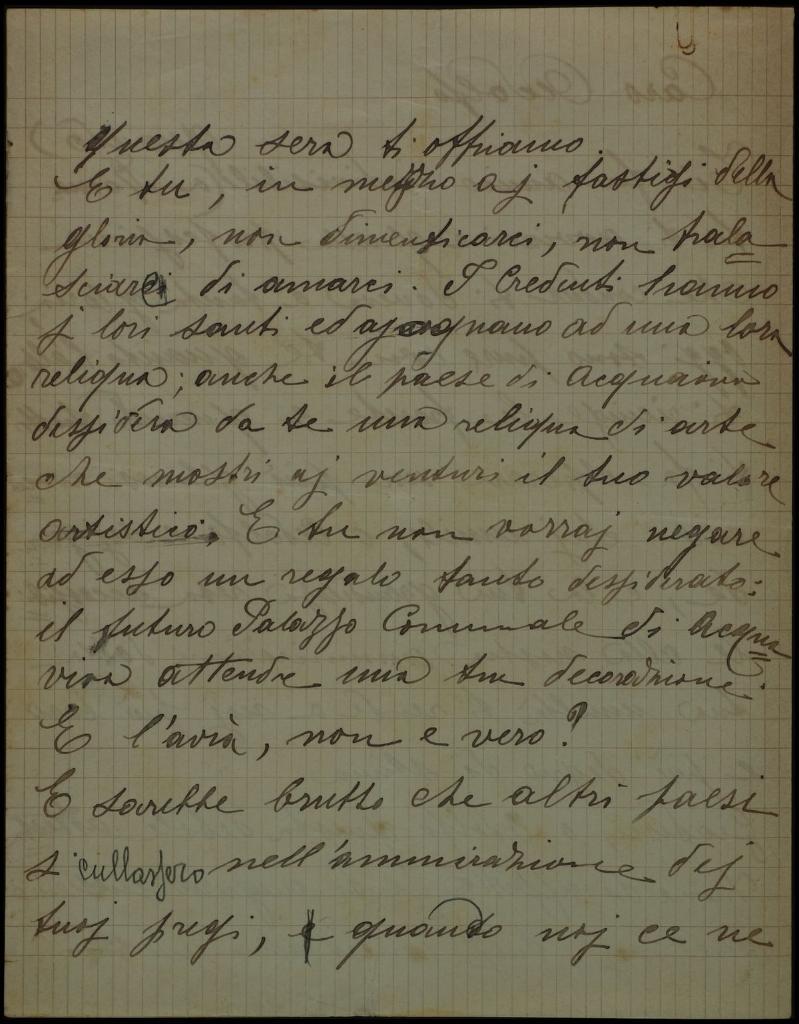 questa sera ti offriamo.
E tu, in mezzo aj fastigi della
gloria, non dimenticarci, non trala=
sciarci di amarci. I Credenti hanno
j lori santi ed agognano ad una lora
reliqua; anche il paese di Acquaviva
dessidera da te una reliqua di arte
che mostri aj venturi il tuo valore
artistico. E tu non vorraj negare
ad esso un regalo tanto dessiderato:
il futuro Palazzo Comunale di Acqua=
viva attende una tua decorazione.
E l'avrà, non e vero?
E sarebbe brutto che altri paesi
si cullassero nell'ammirazione dej
tuoj pregi, e quando noj ce ne